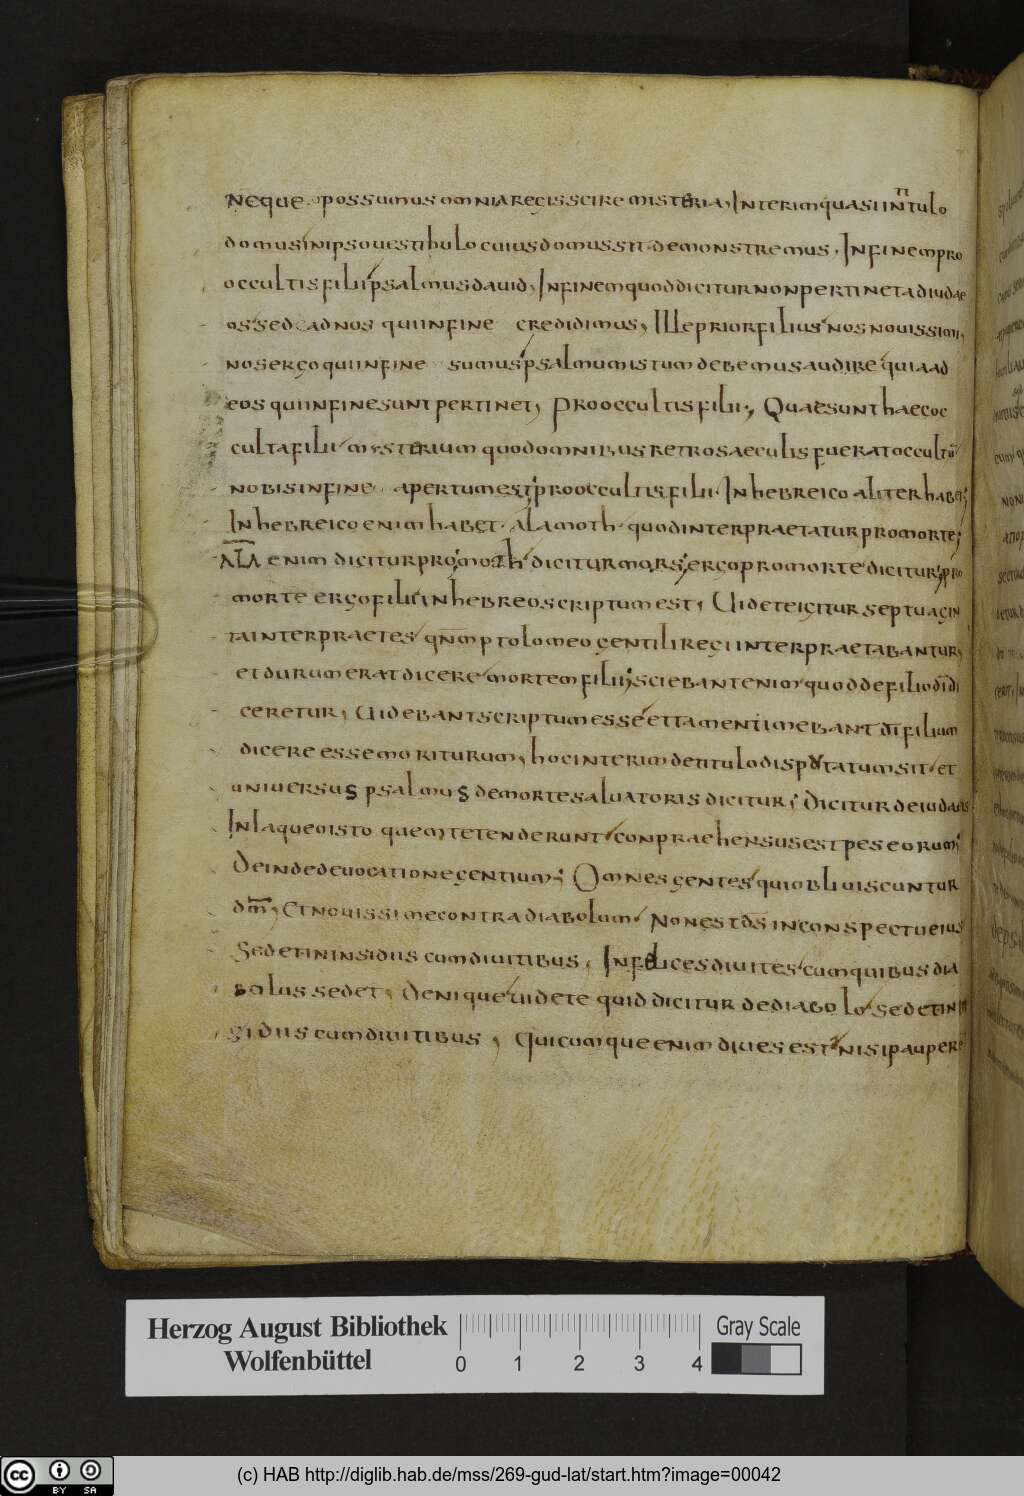 neque possumus omnia regis scire misteria, Interim quasi in titulo
domus in ipso uestibulo cuius domus sit demonstremus. In finem pro
occultis filii psalmus dauid, In finem quod dicitur non pertinet ad iudae
os sed ad nos qui in fine credidimus, Ille prior filius nos nouissimi,
nos ergo qui in fine sumus psalmum istum debemus audire quia ad
eos qui in fine sunt pertinet, Pro occultis filii., Quae sunt haec oc
culta filii mysterium quod omnibus retro saeculis fuerat occultū
nobis in fine apertum est; pro occultis filii. In hebreico aliter habet;
In hebreico enim habet. alamoth. quod interpraetatur pro morte;
ALA enim dicitur pro; moth dicitur mors; ergo pro morte dicitur; pro
morte ergo filii in hebreo scriptum est, Uidete igitur septuagin
ta interpraetes qnm ptolomeo gentili regi interpraetabantur,
et durum erat dicere mortem filii; sciebant enim quod de filio di di
ceretur, Uidebant scriptum esse et tamen timebant di filium
dicere esse moriturum, hoc interim de titulo disputatum sit et
uniuersus psalmus de morte saluatoris dicitur; Dicitur de iudaeis
In laqueo isto quem tetenderunt conpraehensus est pes eorum;
Deinde de uocatione gentium; Omnes gentes qui obliuiscuntur
dm, Et nouissime contra diabolum. Non est ds in conspectu eius
Sedet in insidiis cum diuitibus. Infelices diuites cum quibus dia
bolus sedet, Denique uidete quid dicitur de diabolo sedet in in
sidiis cum diuitibus, Quicumque enim diues est nisi pauper
Herzog August Bibliothek
Wolfenbüttel
0 1 2 3 4
Gray Scale
cc BY SA
(c) HAB http://diglib.hab.de/mss/269-gud-lat/start.htm?image=00042